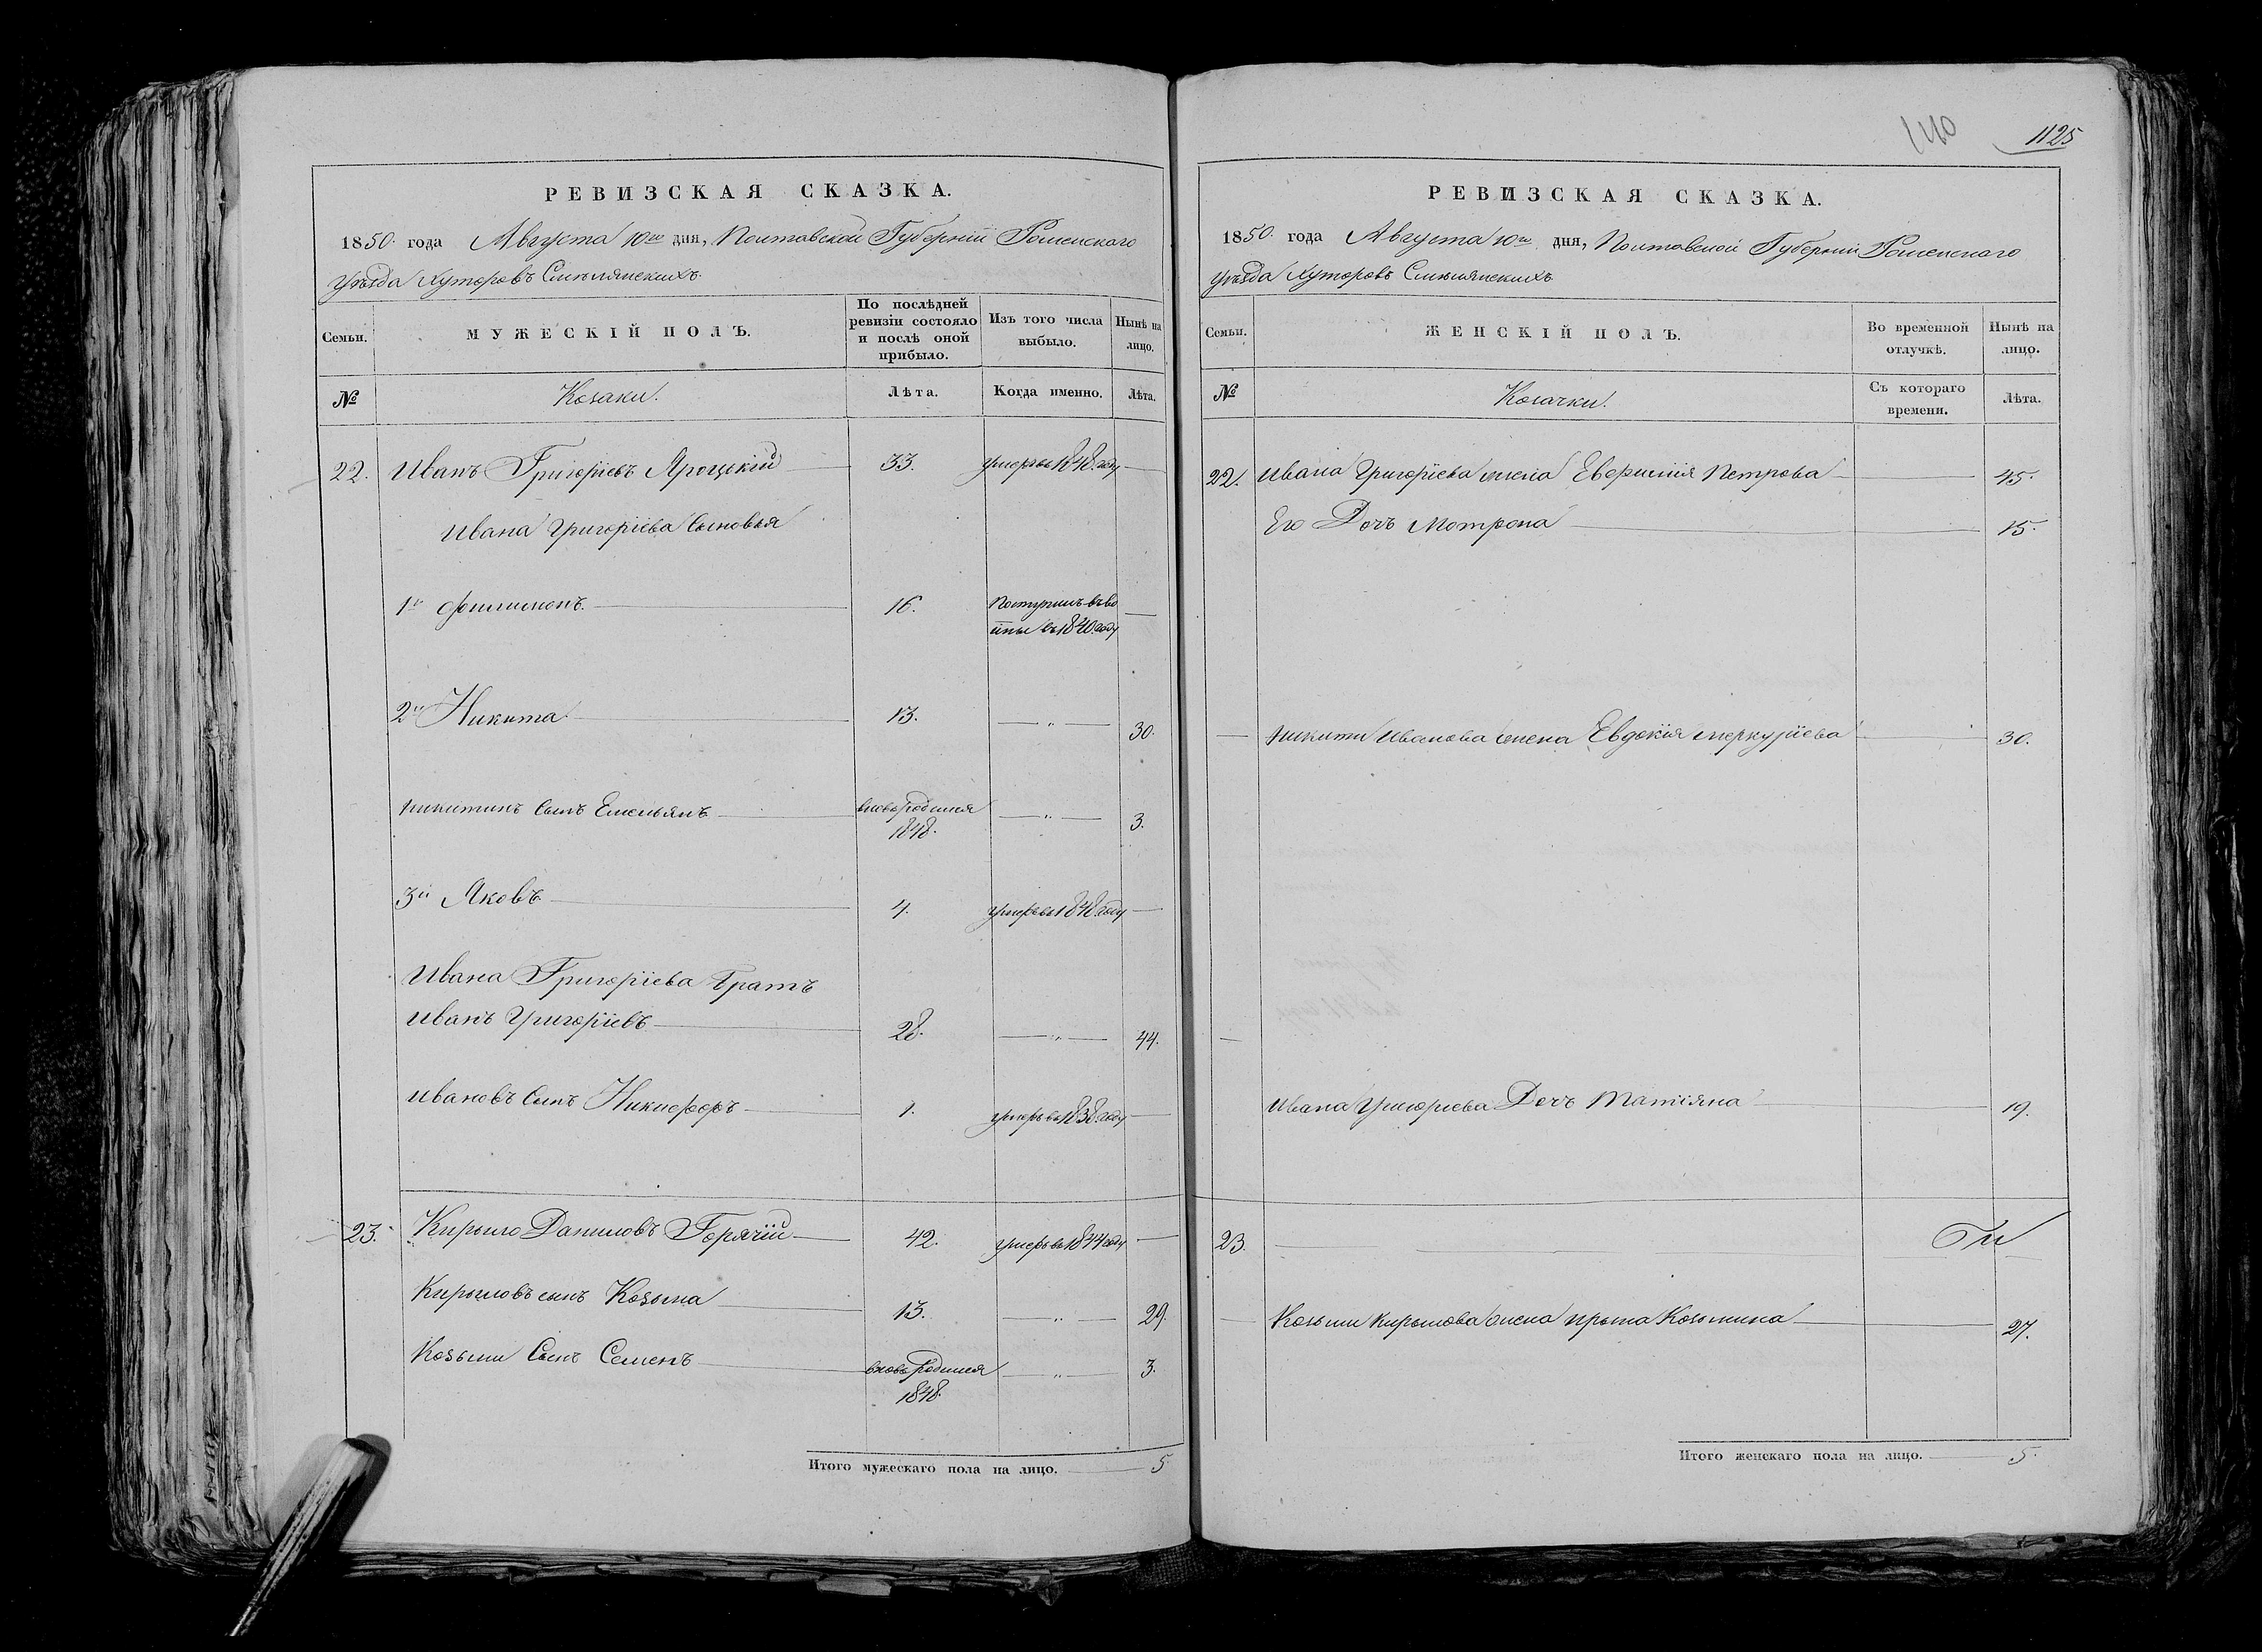 РЕВИЗСКАЯ СКАЗКА.
1850. года Августа 10го дня, Полтавской Губерніи Роменскаго
уѣзда Хуторовъ Смѣлянскихъ.
Семьи.
МУЖЕСКІЙ ПОЛЪ.
По послѣдней ревизіи состояло и послѣ оной прибыло.
Изъ того числа выбыло.
Нынѣ на лицо.
№
Козаки.
Лѣта.
Когда именно.
Лѣта.
22. Иванъ Григоріевъ Яроцькій 33. умеръ въ 1848. году
Ивана Григоріева сыновья
1й Филимонъ. 16. Поступилъ въ во
ины въ 1840. году
2й Никита. 13. — „ — 30.
Никитинъ сынъ Емельянъ вновь родился — „ — 3.
1848.
3й Яковъ 4. умеръ въ 1848. году
Ивана Григоріева Братъ
Иванъ Григоріевъ 28. — „ — 44.
Ивановъ сынъ Никифоръ 1. умеръ въ 1838. году
23. Кирыло Даниловъ Горячій 42. умеръ въ 1844 году
Кирыловъ сынъ Козьма 13. — „ — 29.
Козьми Сынъ Семенъ вновь родился — „ — 3.
1848.
Итого мужескаго пола на лицо. 5
1125
РЕВИЗСКАЯ СКАЗКА.
1850. года Августа 10го дня, Полтавской Губерніи Роменскаго
уѣзда Хуторовъ Смѣлянскихъ
Семьи.
ЖЕНСКІЙ ПОЛЪ.
Во временной отлучкѣ.
Нынѣ на лицо.
№
Козачки.
Съ котораго времени.
Лѣта.
22. Ивана Григоріева жена Евфимія Петрова 45.
Его Дочь Мотрона 15.
Никити Иванова жена Евдокія Меркуріева 30.
Ивана Григоріева Дочь Татіяна 19.
23.
Козьми Кирылова жена Ирына Козьмина 27.
Итого женскаго пола на лицо. 5.